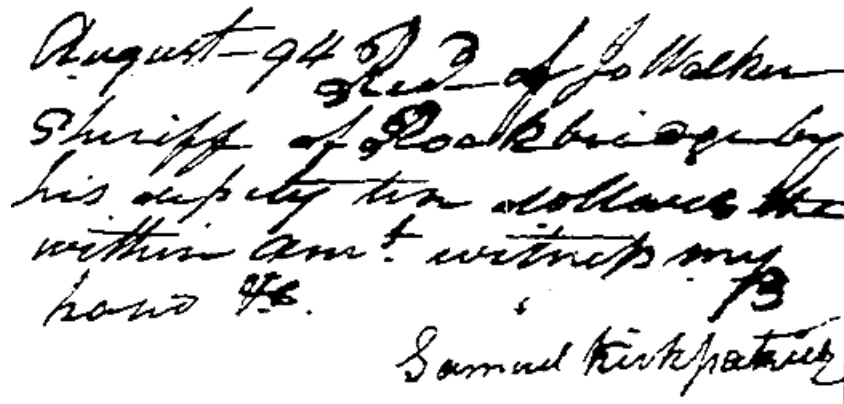 August 94 Recd of Jo Walker
Sheriff of Rockbridge by
his deputy ten dollars the
within amt. witness my
hand &c. B
Samuel Kirkpatrick